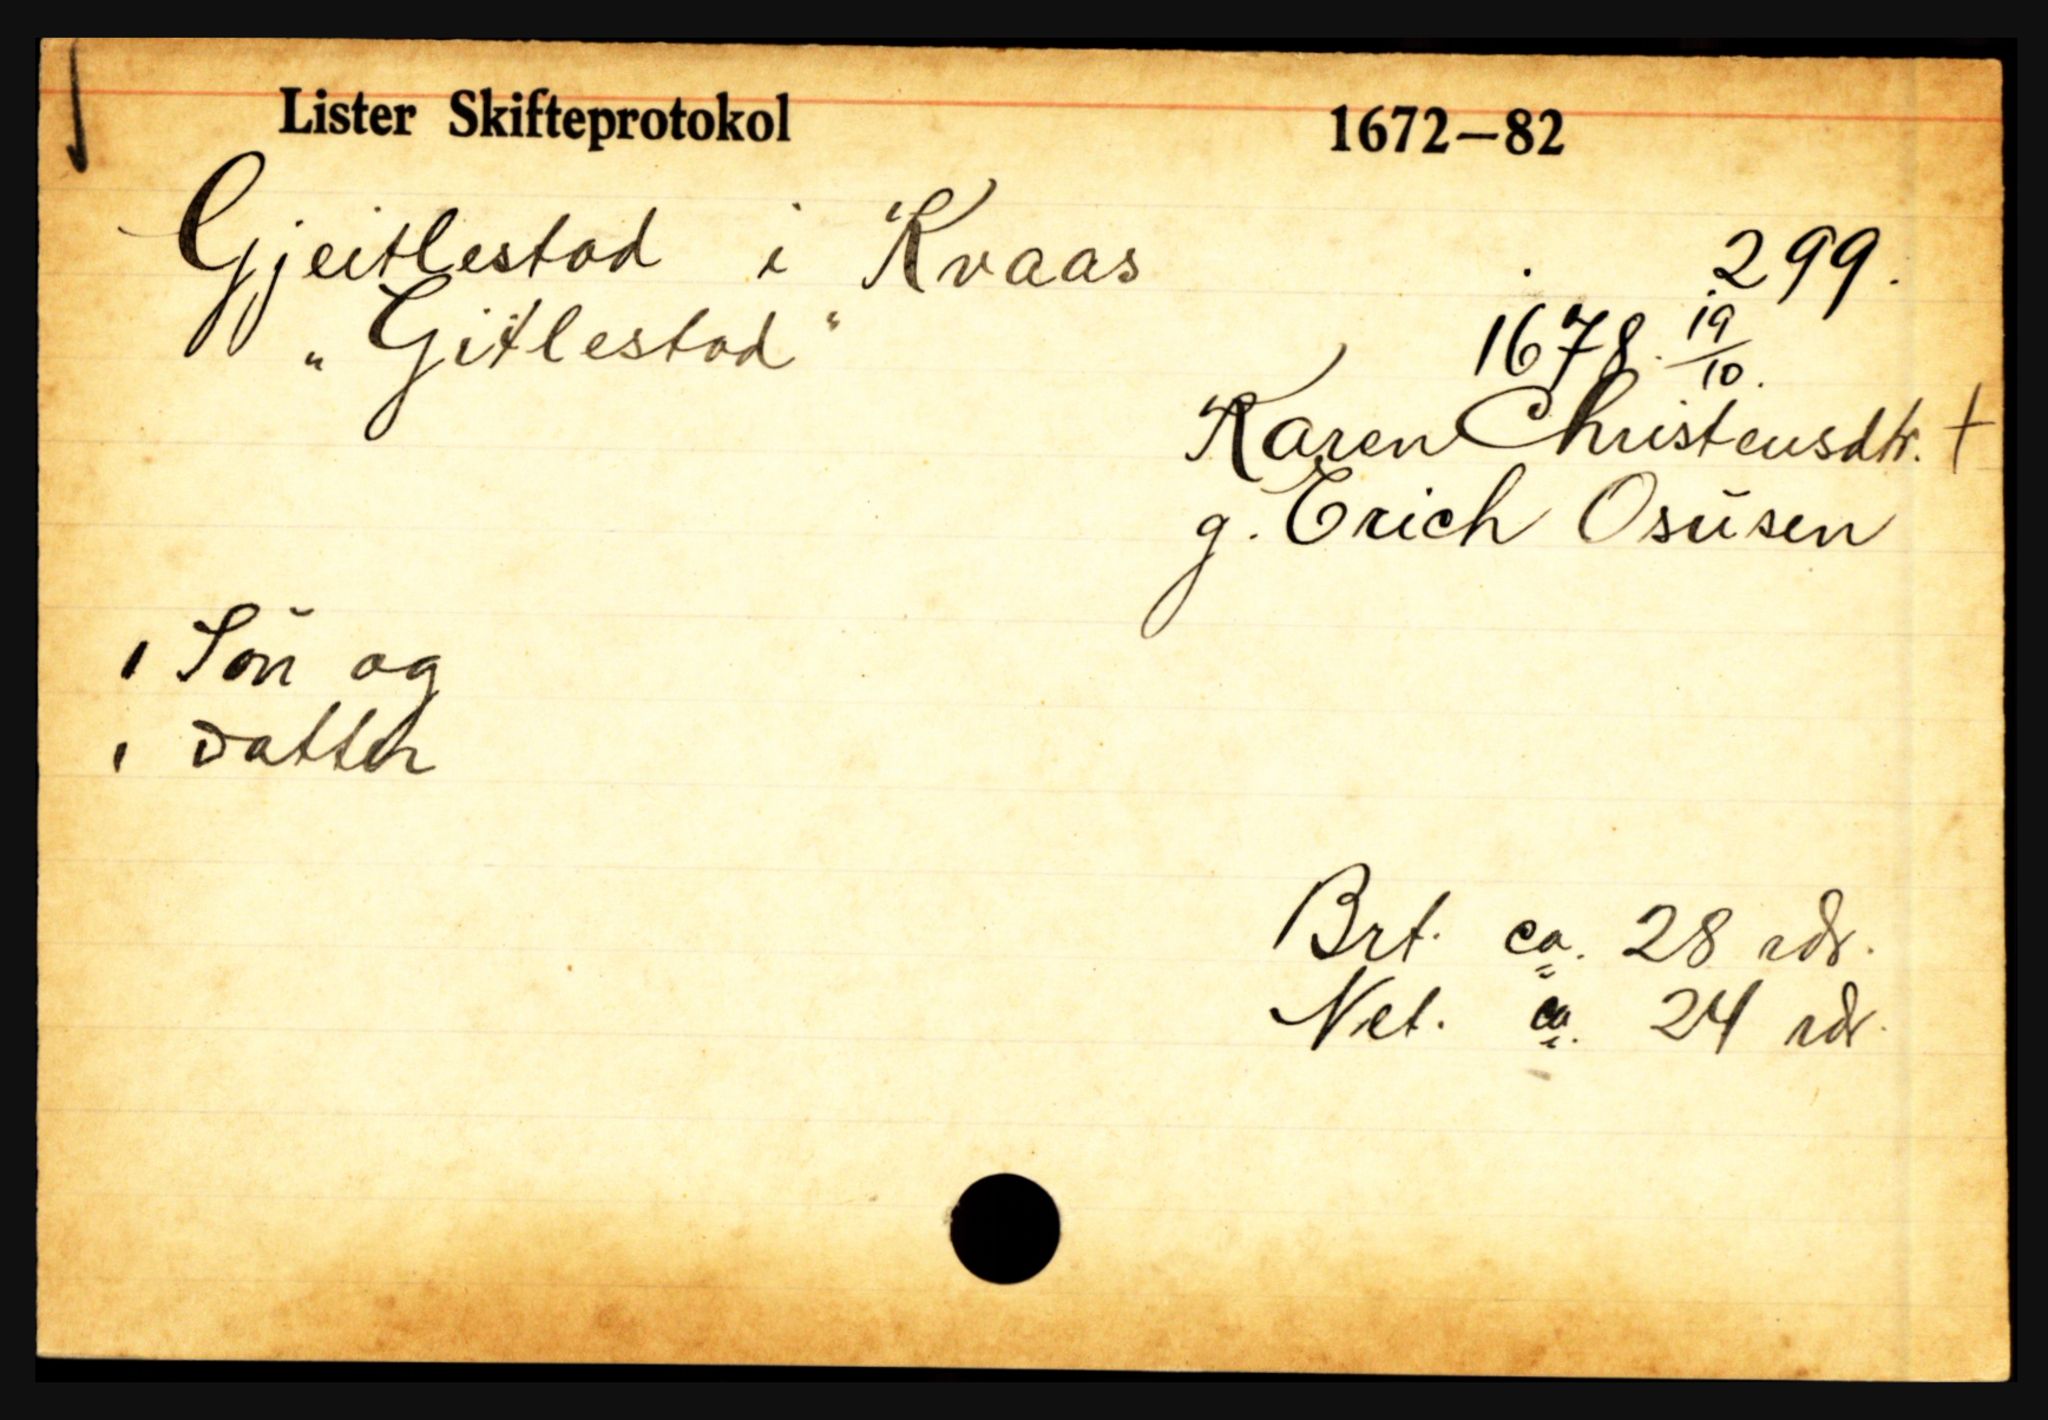 Lister Skifteprotokol 1672–82
Gjeitlestad i Kvaas 299.
"Gitlestad" 1678 19/10.
Karen Christensdtr. +
g. Erich Osusen
1 Søn og
1 datter
Brt. ca. 28 rdr.
Net. ca. 24 rdr.